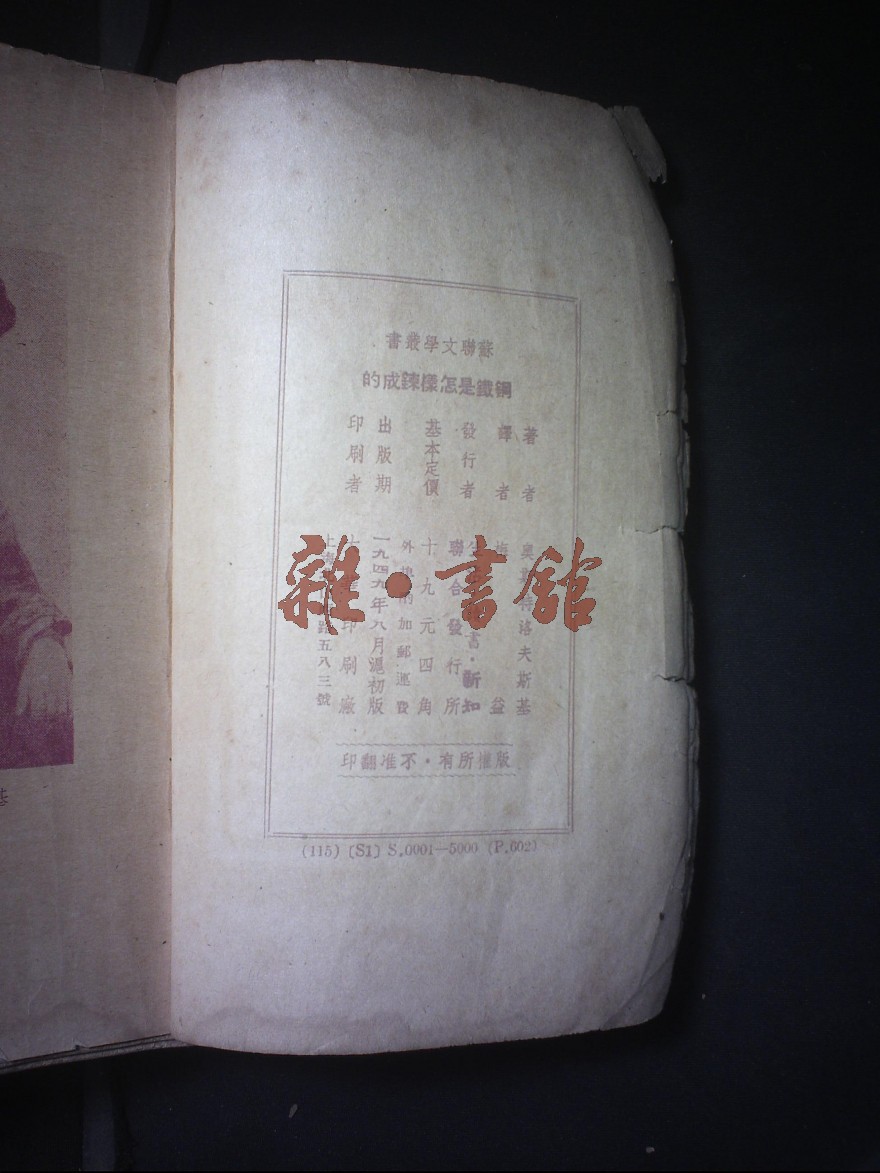 蘇聯文學叢書
鋼鐵是怎樣鍊成的
著者 奧斯特洛夫斯基
譯者 梅益
發行者 書·新知
聯合發行所
基本定價 十九元四角
外埠酌加郵運費
出版期 一九四九年八月滬初版
印刷者 印刷廠
上海 路五八三號
版權所有·不准翻印
(115) (S1) S.0001—5000 (P.602)
雜·書館
基